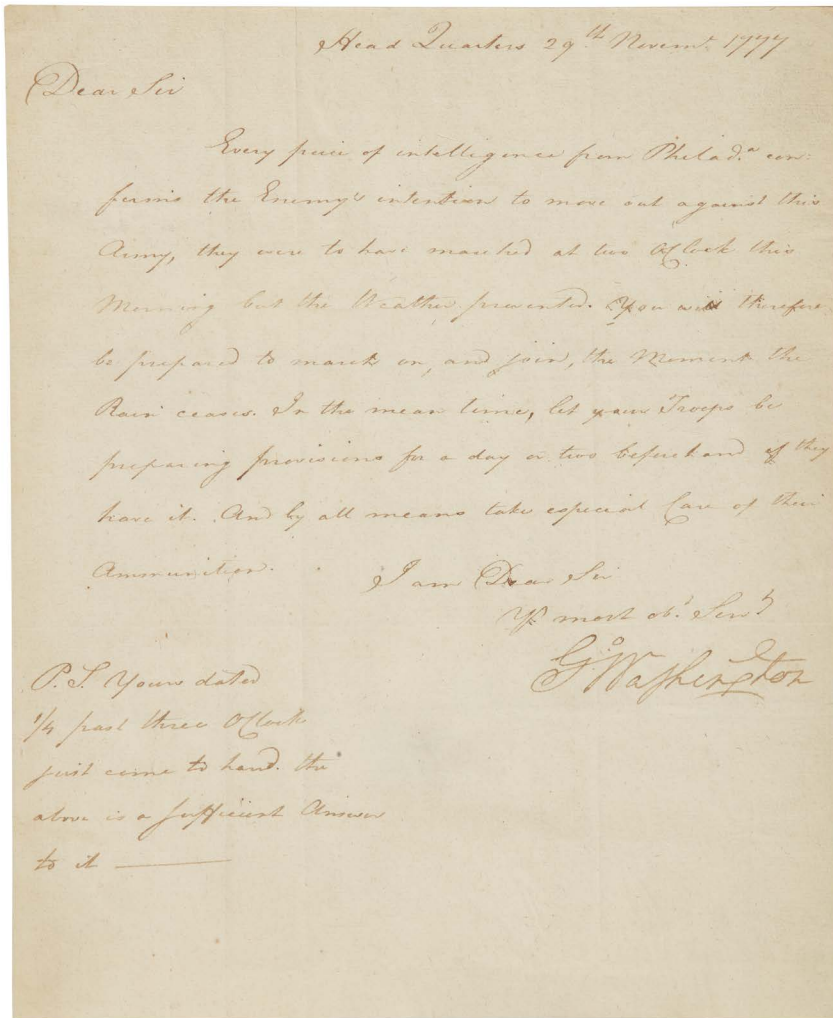 Head Quarters 29th Novemr. 1777
Dear Sir
Every piece of intelligence from Philada. con:
firms the Enemy's intention to move out against this
Army, they were to have marched at two OClock this
Morning but the Weather prevented. You will therefore
be prepared to march on, and join, the Moment the
Rain ceases. In the mean time, let your Troops be
preparing provisions for a day or two beforehand if they
have it. And by all means take especial Care of their
Ammunition.
I am Dear Sir
Yr. most obt. Servt
Go. Washington
P.S. Yours dated
1/4 past three OClock
just come to hand. the
above is a sufficient Answer
to it ———